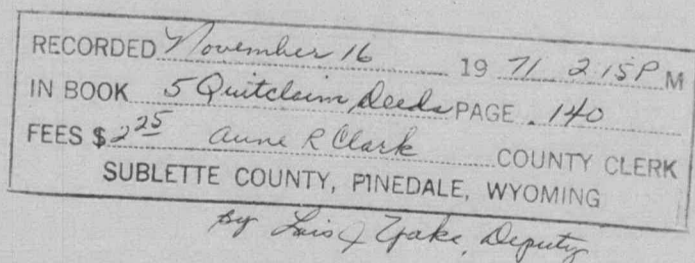 RECORDED November 16 19 71 2:15 P M
IN BOOK 5 Quitclaim Deeds PAGE 140
FEES $ 2 25 Anne R Clark COUNTY CLERK
SUBLETTE COUNTY, PINEDALE, WYOMING
By Lois J Deputy